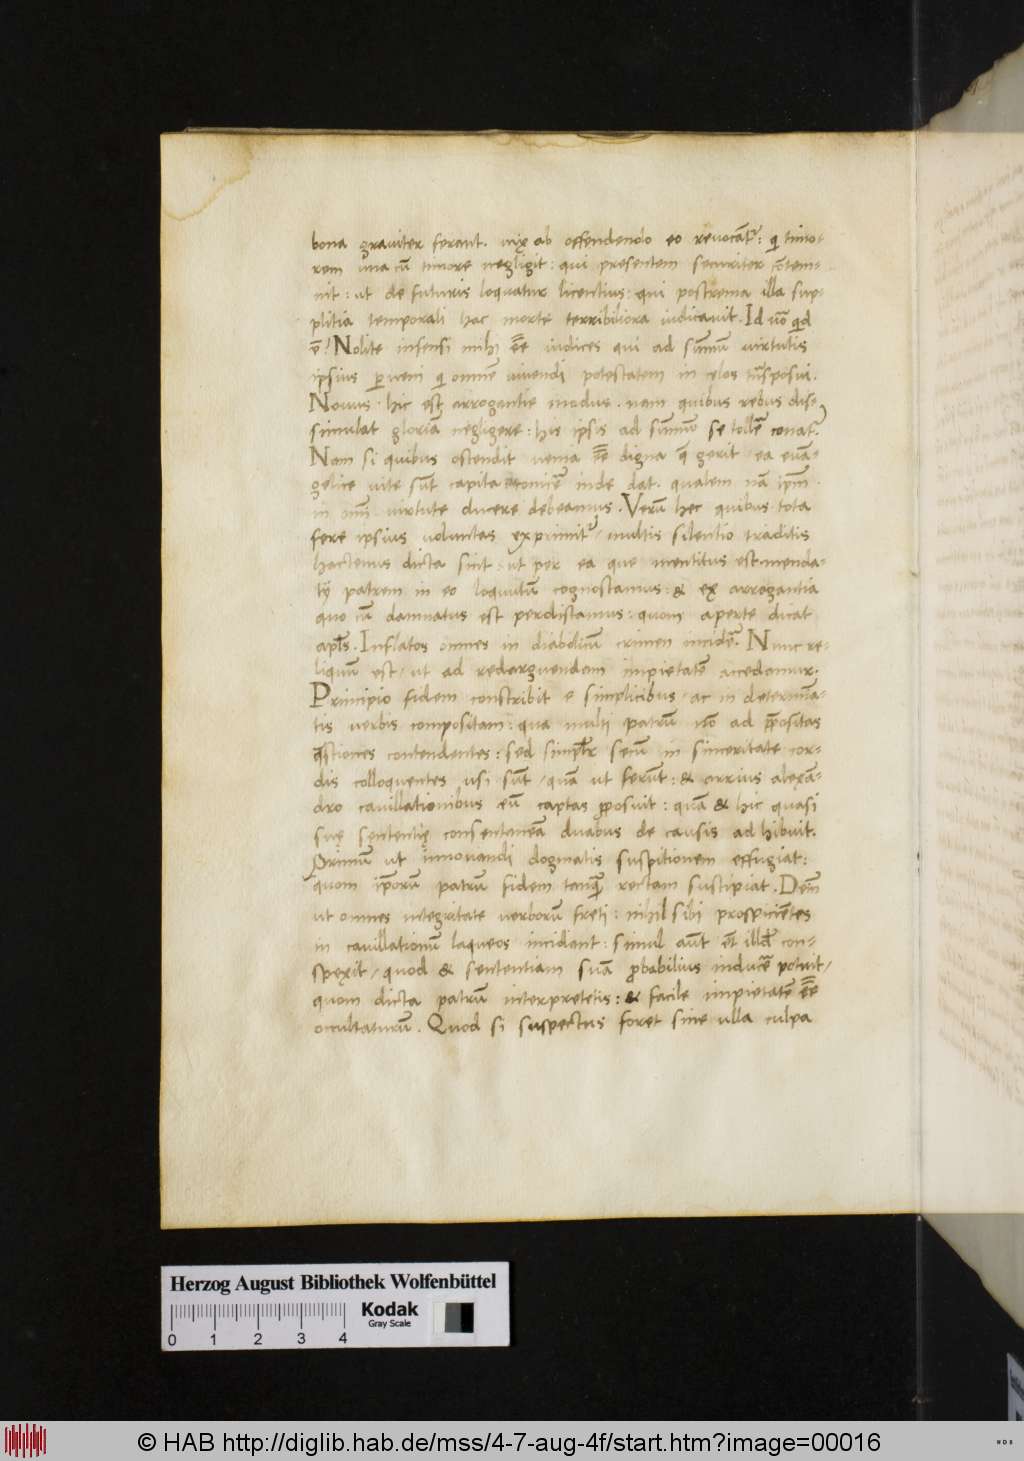 bona graviter ferant. vix ab offendendo eo revocāt᷑: qi timo-
rem una cū timore negligit: qui presentem securiter cōtem-
nit: ut de futuris loquatur licentius: qui postrema illa sup-
plitia temporali hac morte terribiliora iudicavit. Id uō qid
ē? Nolite infensi mihi eē̄ iudices qui ad sūmū virtutis
ipsius ꝑveni qi omnē vivendi potestatem in celos trāsposui.
Novus hic est arrogantie modus. nam quibus rebus dis-
simulat gloriā negligere: his ipsis ad sūmū se tollē̄ conat᷑.
Nam si quibus ostendit venia eē̄ digna q̄ gerit, ea evā-
gelice vite sūt capita inde dat. qualem nā ipm̄
in omī virtute ducere debeamus. Verū hec quibus tota
fere ipsius voluntas exprimit᷑, multis silentio traditis
hactenus dicta sint: ut per ea que mentitus est menda-
tii patrem in eo loquutū cognoscamus: & ex arrogantia
quo cū damnatus est perdiscamus: quom aperte dicat
apl̄s. Inflatos omnes in diabolicū crimen incidē̄. Nunc re-
liquū est, ut ad redarguendam impietatē accedamus.
Principio fidem conscribit e simplicibus, ac in determīa-
tis verbis compositam: qua multi patrū nō ad ꝓpositas
q̄stiones contendentes: sed simpl̄r secū in sinceritate cor-
dis colloquentes usi sūt, quā ut ferūt: & arrius alexā-
dro cavillationibus eū captās ꝓposuit: quā & hic quasi
suę sententię consentaneā duabus de causis adhibuit.
Primū ut innovandi dogmatis suspitionem effugiat:
quom ip̄orū patrū fidem tanq̄ rectam suscipiat. Deīn
ut omnes integritate verborū freti: nihil sibi prospiciētes
in cavillationū laqueos incidant: simul aūt et illđ con-
spexit, quod & sententiam suā ꝓbabilius inducē̄ potuit,
quom dicta patrū interpretetis: & facile impietatē eē̄
occultaturū. Quod si suspectus foret sine ulla culpa
Herzog August Bibliothek Wolfenbüttel
Kodak
Gray Scale
0 1 2 3 4
© HAB http://diglib.hab.de/mss/4-7-aug-4f/start.htm?image=00016